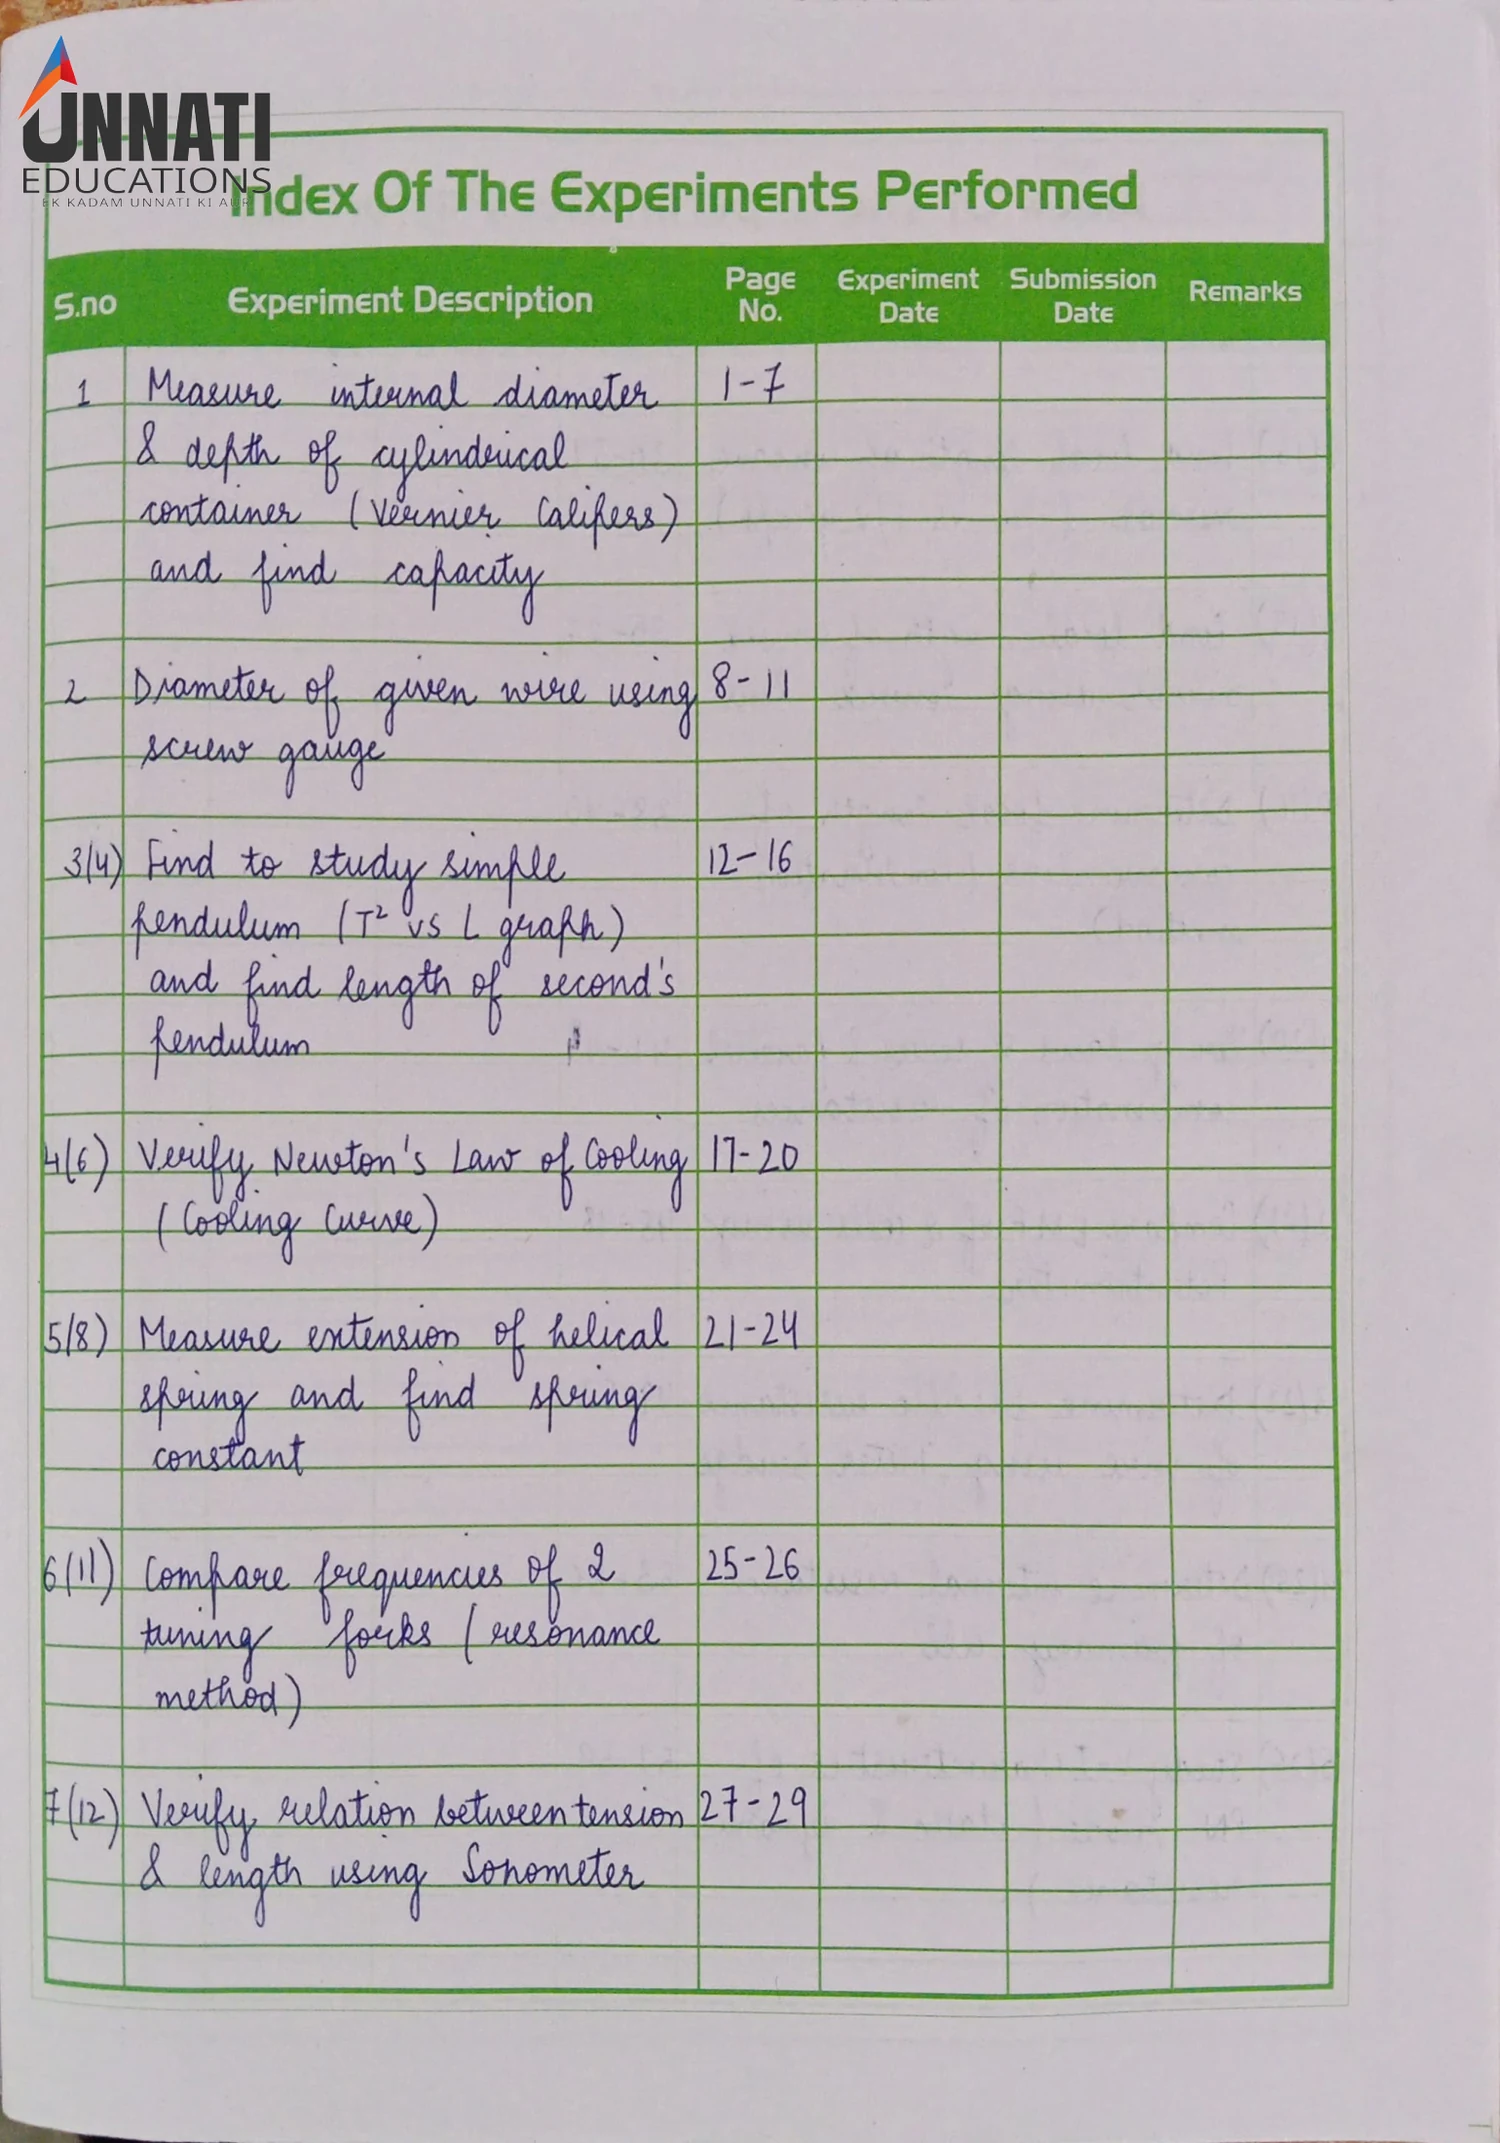 UNNATI
EDUCATIONS
EK KADAM UNNATI KI AUR
Index Of The Experiments Performed
S.no Experiment Description Page No. Experiment Date Submission Date Remarks
1 Measure internal diameter 1-7
& depth of cylinderical
container (Vernier Calipers)
and find capacity
2 Diameter of given wire using 8-11
screw gauge
3(4) Find to study simple 12-16
pendulum (T² vs L graph)
and find length of second's
pendulum
4(6) Verify Newton's Law of Cooling 17-20
(Cooling Curve)
5(8) Measure extension of helical 21-24
spring and find spring
constant
6(11) Compare frequencies of 2 25-26
tuning forks (resonance
method)
7(12) Verify relation between tension 27-29
& length using Sonometer